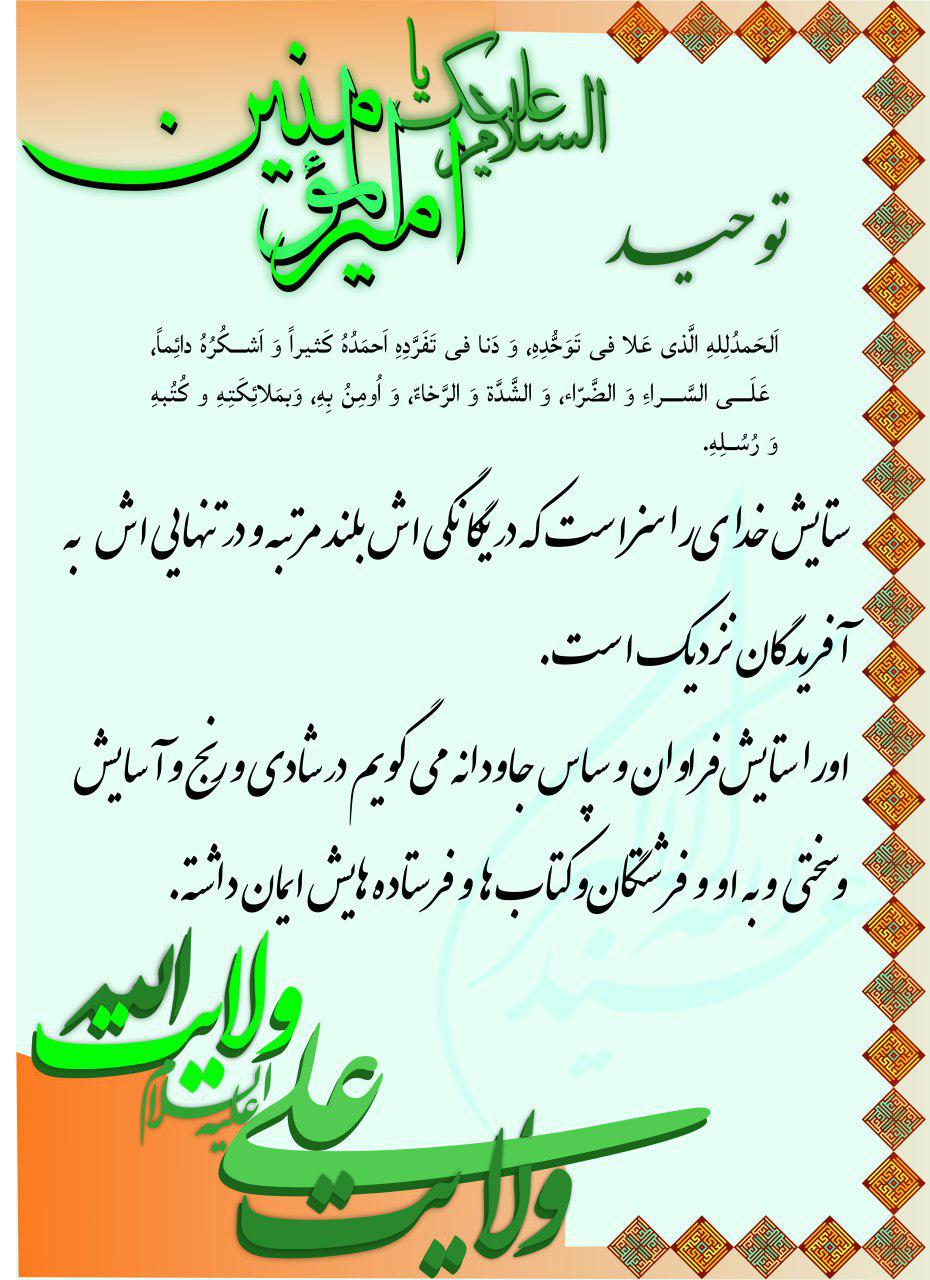 السلام علیک یا
امیرالمؤمنین
توحید
اَلحَمدُلِلهِ الَّذی عَلا فی تَوَحُّدِهِ، وَ دَنا فی تَفَرَّدِهِ اَحمَدُهُ کَثیراً وَ اَشــکُرُهُ دائِماً،
عَلَــی السَّـــراءِ وَ الضَّرّاء، وَ الشَّدَّة وَ الرَّخاءّ، وَ اُومِنُ بِهِ، وَبمَلائِکَتِهِ و کُتُبهِ
وَ رُسُــلِهِ.
ستایش خدای را سزاست که در یگانگی اش بلند مرتبه و در تنهایی اش به
آفریدگان نزدیک است.
او را ستایش فراوان و سپاس جاودانه می گویم در شادی و رنج و آسایش
و سختی و به او و فرشتگان و کتاب ها و فرستاده هایش ایمان داشته.
ولایت الله
ولایت علی علیه السلام